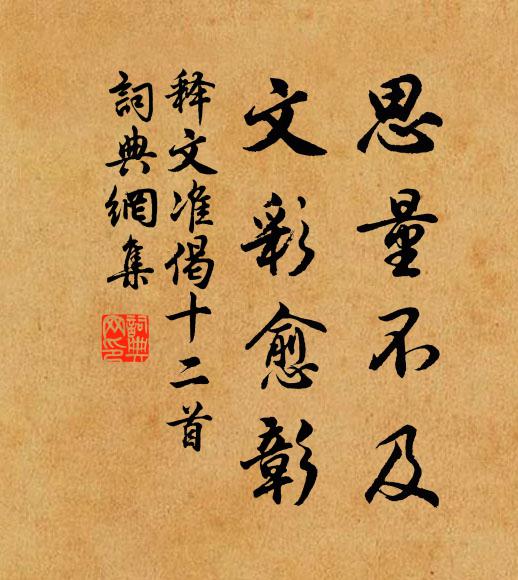 思量不及
文彩愈彰
释文准偈十二首
詞典網集
詞典網印